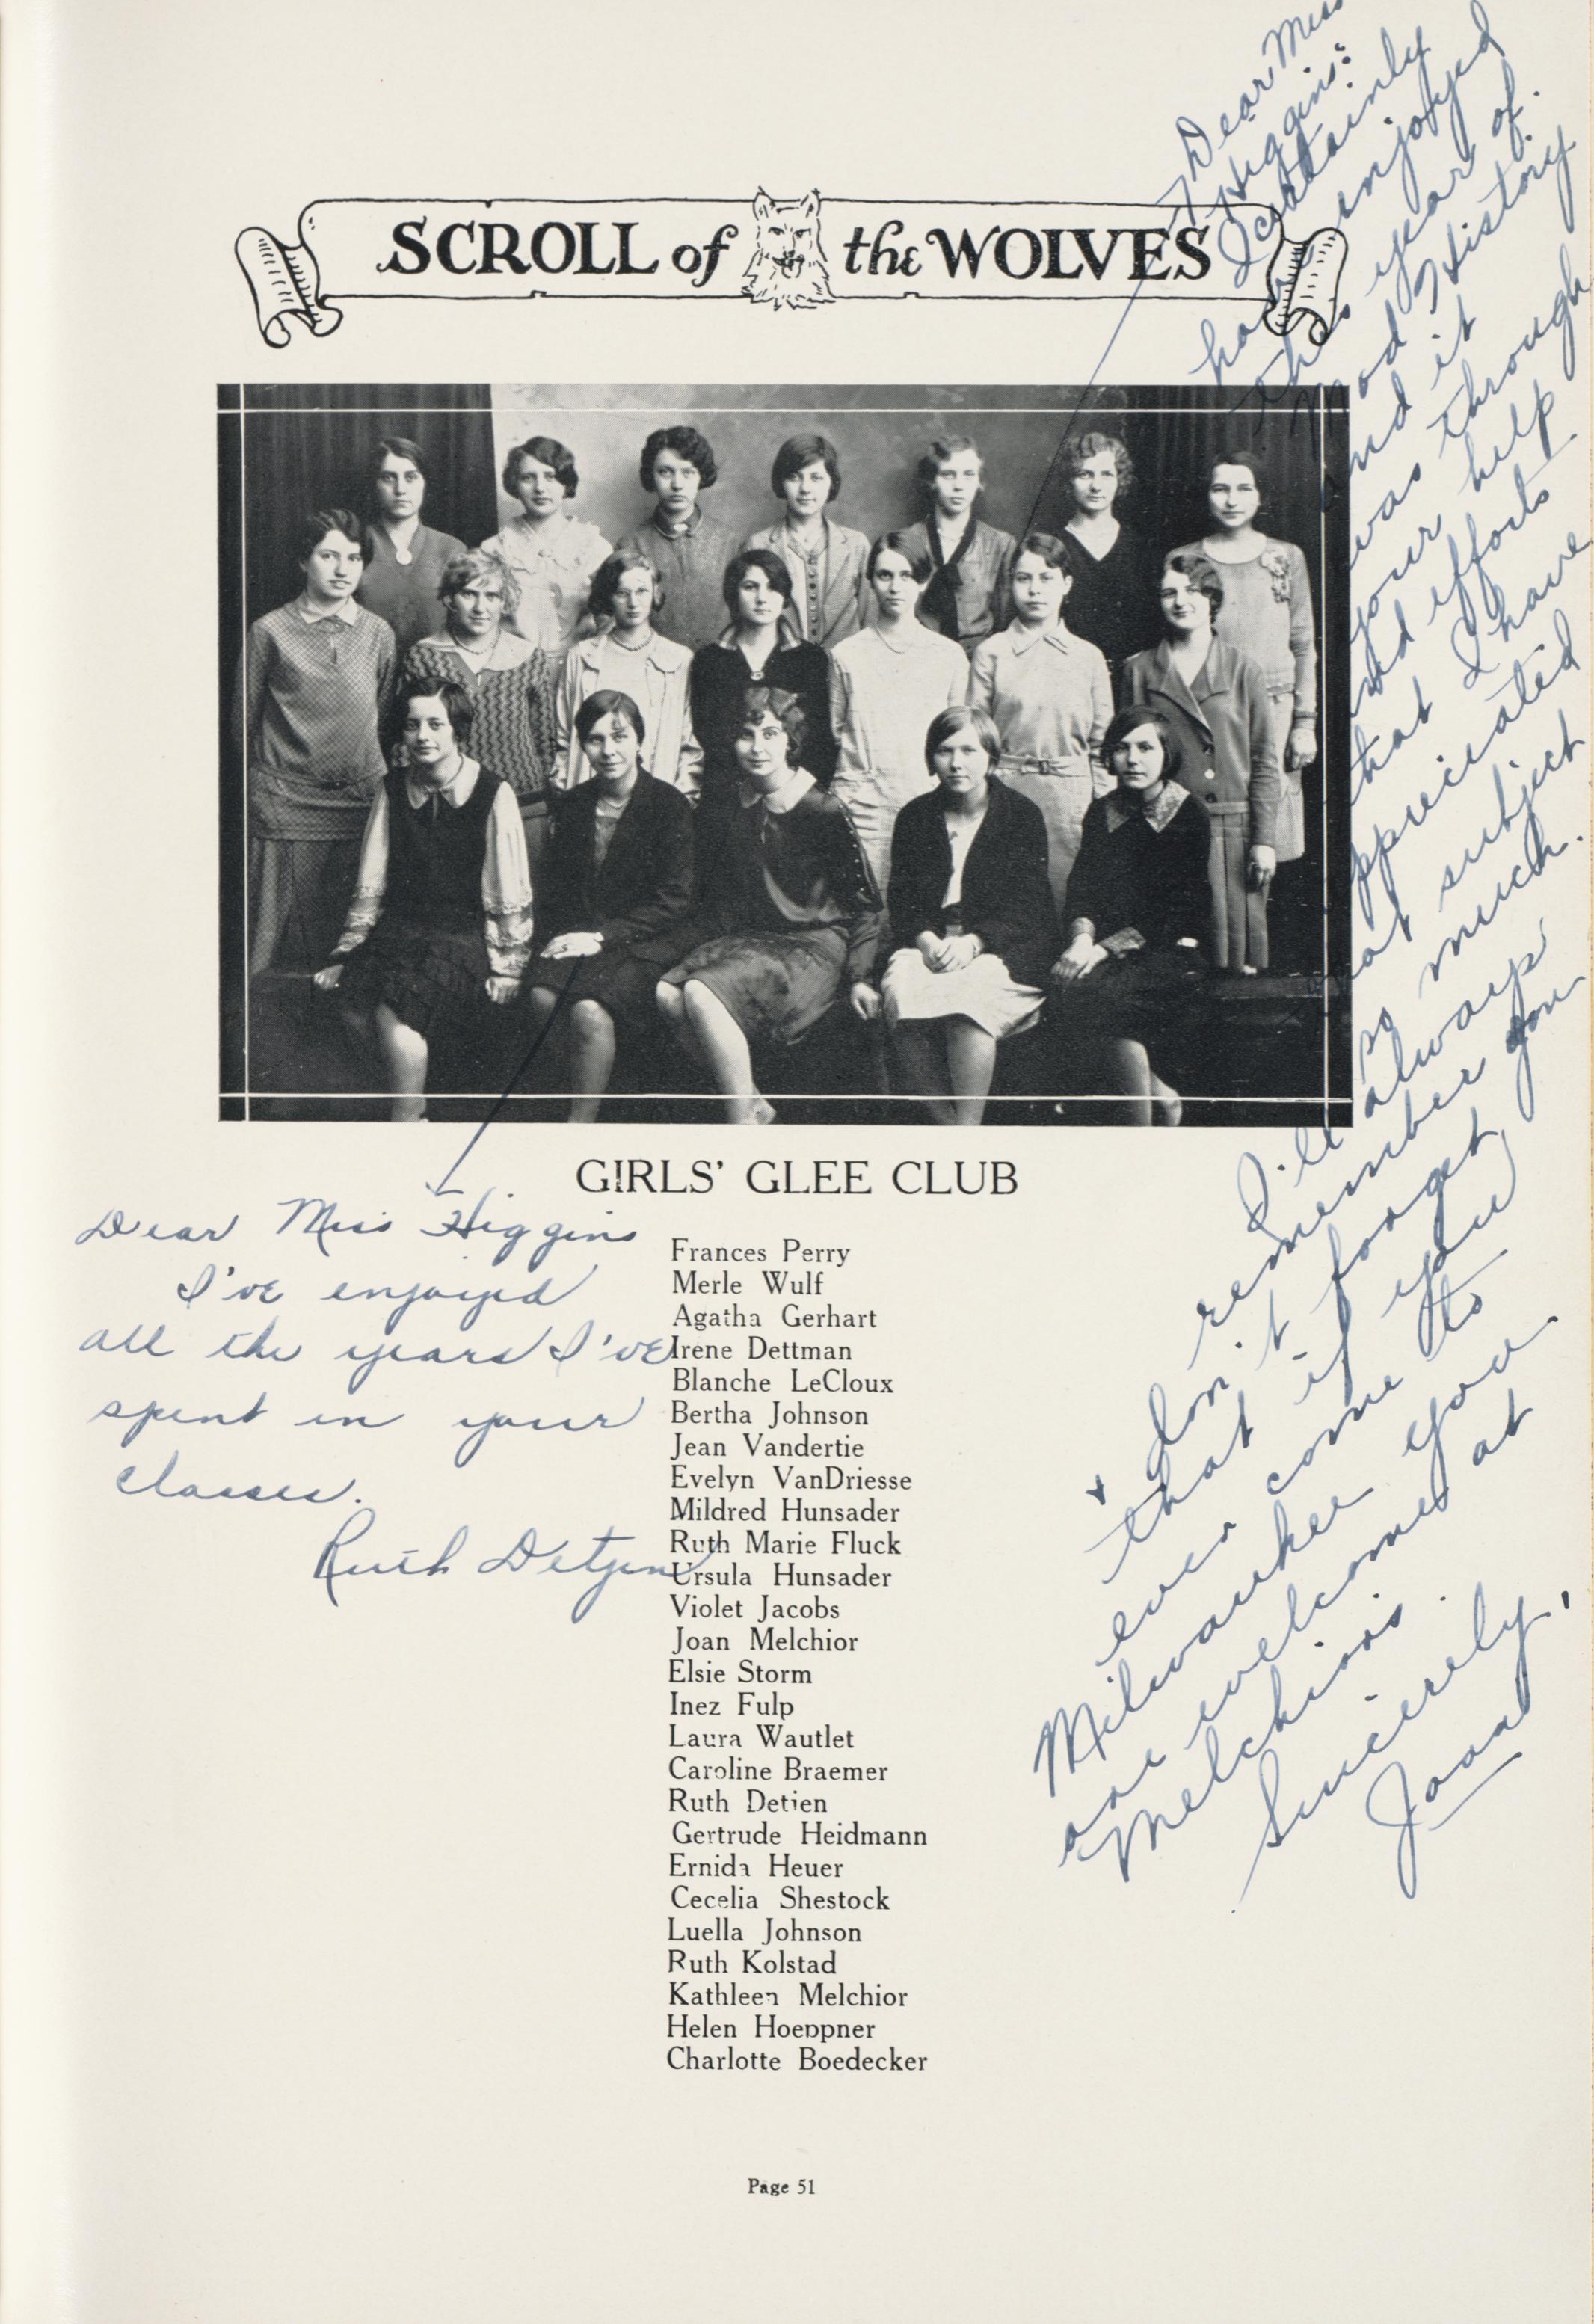 SCROLL of the WOLVES
Dear Miss
Higgins:
I certainly
have enjoyed
this year of
Mod History
and it
was through
your help
and efforts
that I have
appreciated
that subject
so much.
I'll always
remember you
+ don't forget
that if you
ever come to
Milwaukee you
are welcome at
Melchiors.
Sincerely,
Joan
GIRLS' GLEE CLUB
Dear Miss Higgins
I've enjoyed
all the years I've
spent in your
classes.
Ruth Detjen
Frances Perry
Merle Wulf
Agatha Gerhart
Irene Dettman
Blanche LeCloux
Bertha Johnson
Jean Vandertie
Evelyn VanDriesse
Mildred Hunsader
Ruth Marie Fluck
Ursula Hunsader
Violet Jacobs
Joan Melchior
Elsie Storm
Inez Fulp
Laura Wautlet
Caroline Braemer
Ruth Detien
Gertrude Heidmann
Ernida Heuer
Cecelia Shestock
Luella Johnson
Ruth Kolstad
Kathleen Melchior
Helen Hoeppner
Charlotte Boedecker
Page 51